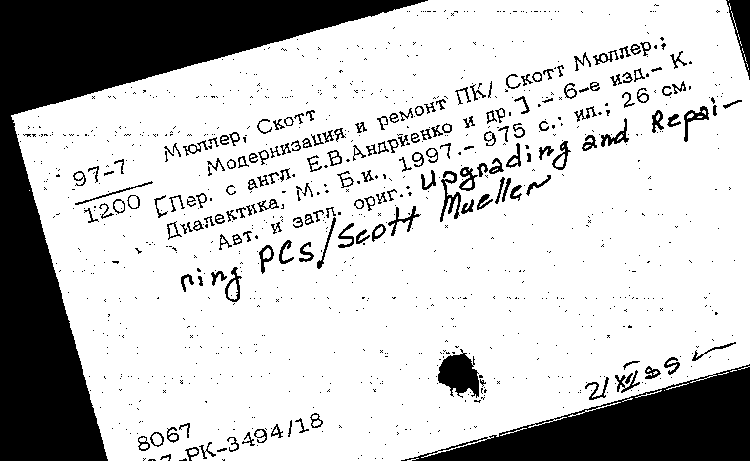 97-7
1200
Мюллер, Скотт
Модернизация и ремонт ПК/ Скотт Мюллер.;
[Пер. с англ. Е.В.Андриенко и др.].- 6-е изд.- К.
Диалектика; М.: Б.и., 1997.- 975 с.: ил.; 26 см.
Авт. и загл. ориг.: Upgrading and Repai-
ring PCS/Scott Mueller
21 XII
8067
-РК-3494/18